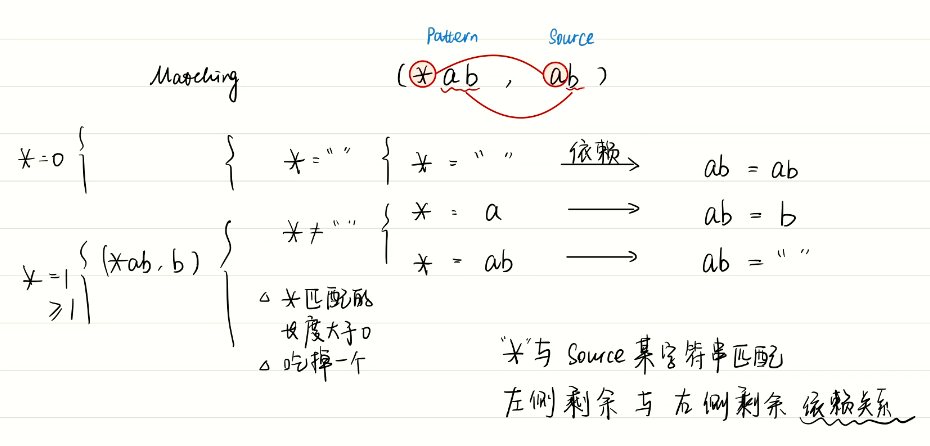 Pattern Source
Matching (*ab, ab)
*=0 *="" *="" 依赖 ab = ab
*≠"" * = a ab = b
*=1 (*ab, b) * = ab ab = ""
≥1
△ *匹配的
长度大于0
△ 吃掉一个
"*"与 Source 某字符串匹配
左侧剩余 与 右侧剩余 依赖关系